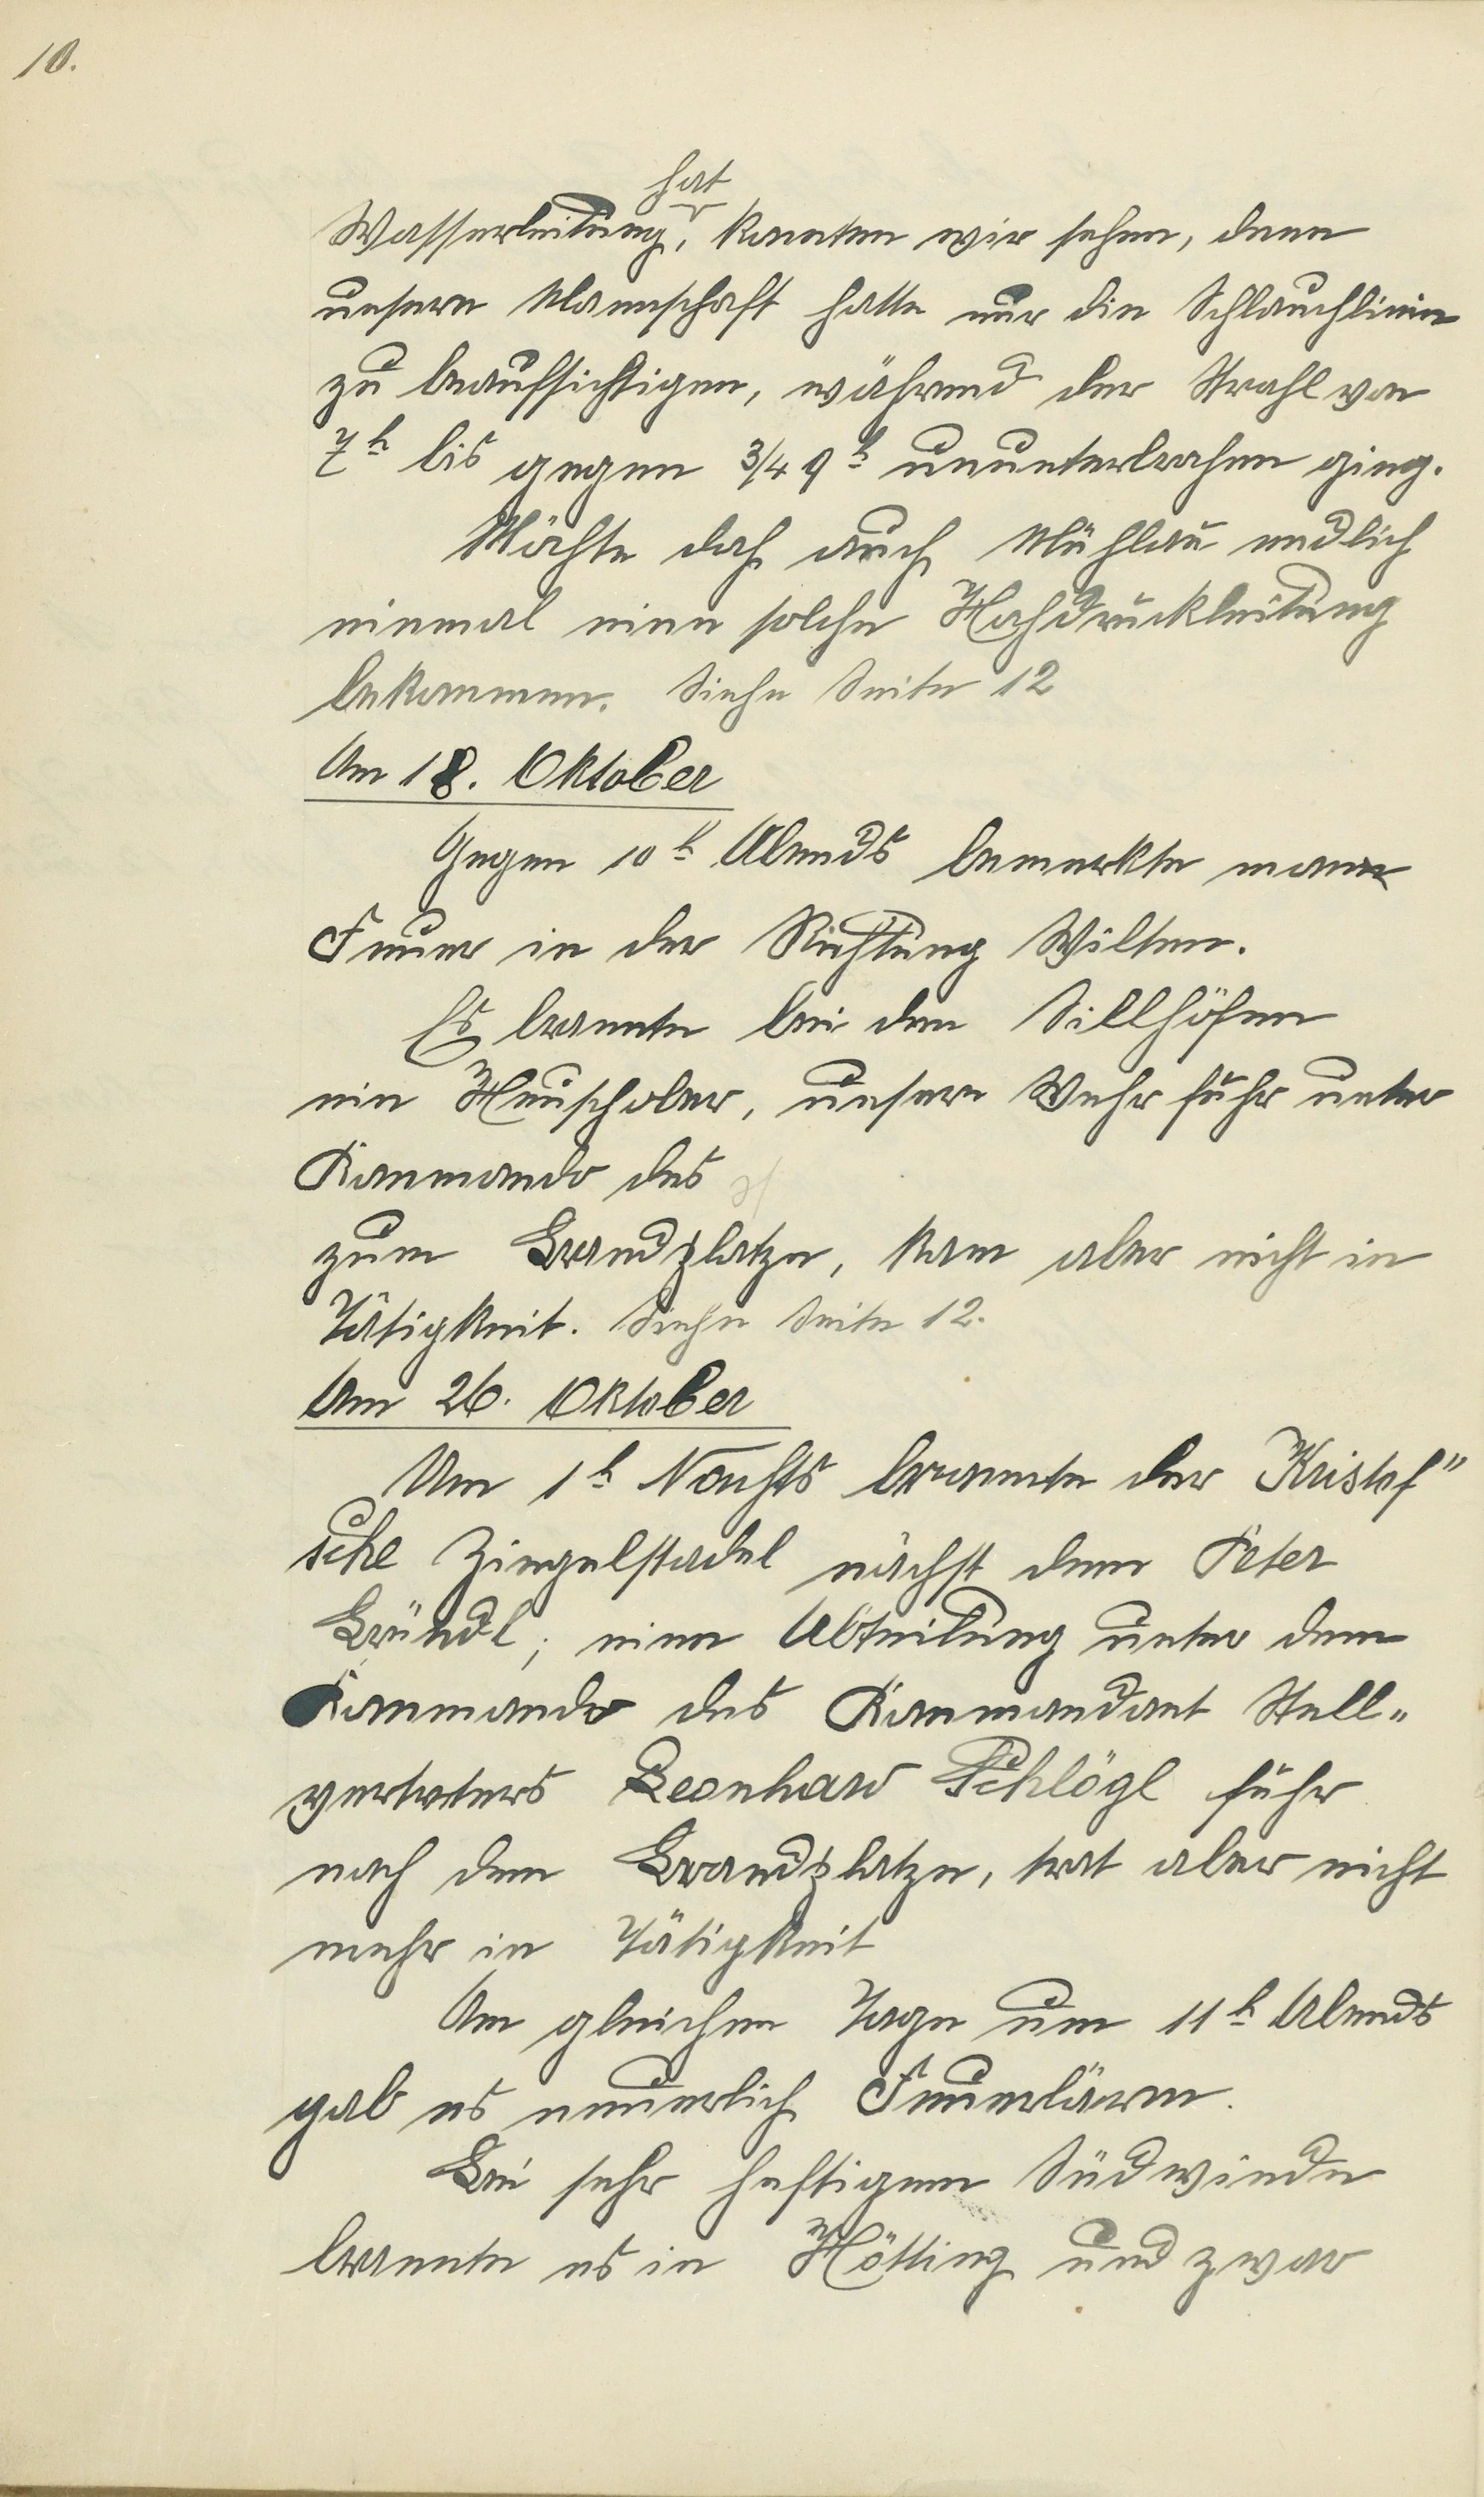 10.
hat
Wasserleitung, konnten wir sehen, denn
unsere Mannschaft hatte nur die Schlauchlinie
zu beaufsichtigen, während der Strahl von
7h bis gegen 3/4 9h ununterbrochen ging.
Möchte doch auch Mühlau endlich
einmal eine solche Hochdruckleitung
bekommen. Siehe Seite 12
Am 18. Oktober
Gegen 10h Abends bemerkte man
Feuer in der Richtung Wilten.
Es brannte bei den Sillhöfen
ein Heuschober, unsere Wehr fuhr unter
Kommando des
zum Brandplatze, kam aber nicht in
Tätigkeit. Siehe Seite 12.
Am 26. Oktober
Um 1h Nachts brannte der Kristof"
sche Ziegelstadel nächst dem Peter
Bründl; eine Abteilung unter dem
Kommando des Kommandant Stell=
vertreters Leonhard Schlögl fuhr
nach dem Brandplatze, trat aber nicht
mehr in Tätigkeit
Am gleichen Tage um 11h Abends
gab es neuerlich Feuerlärm.
Bei sehr heftigem Südwinde
brannte es in Hötting und zwar